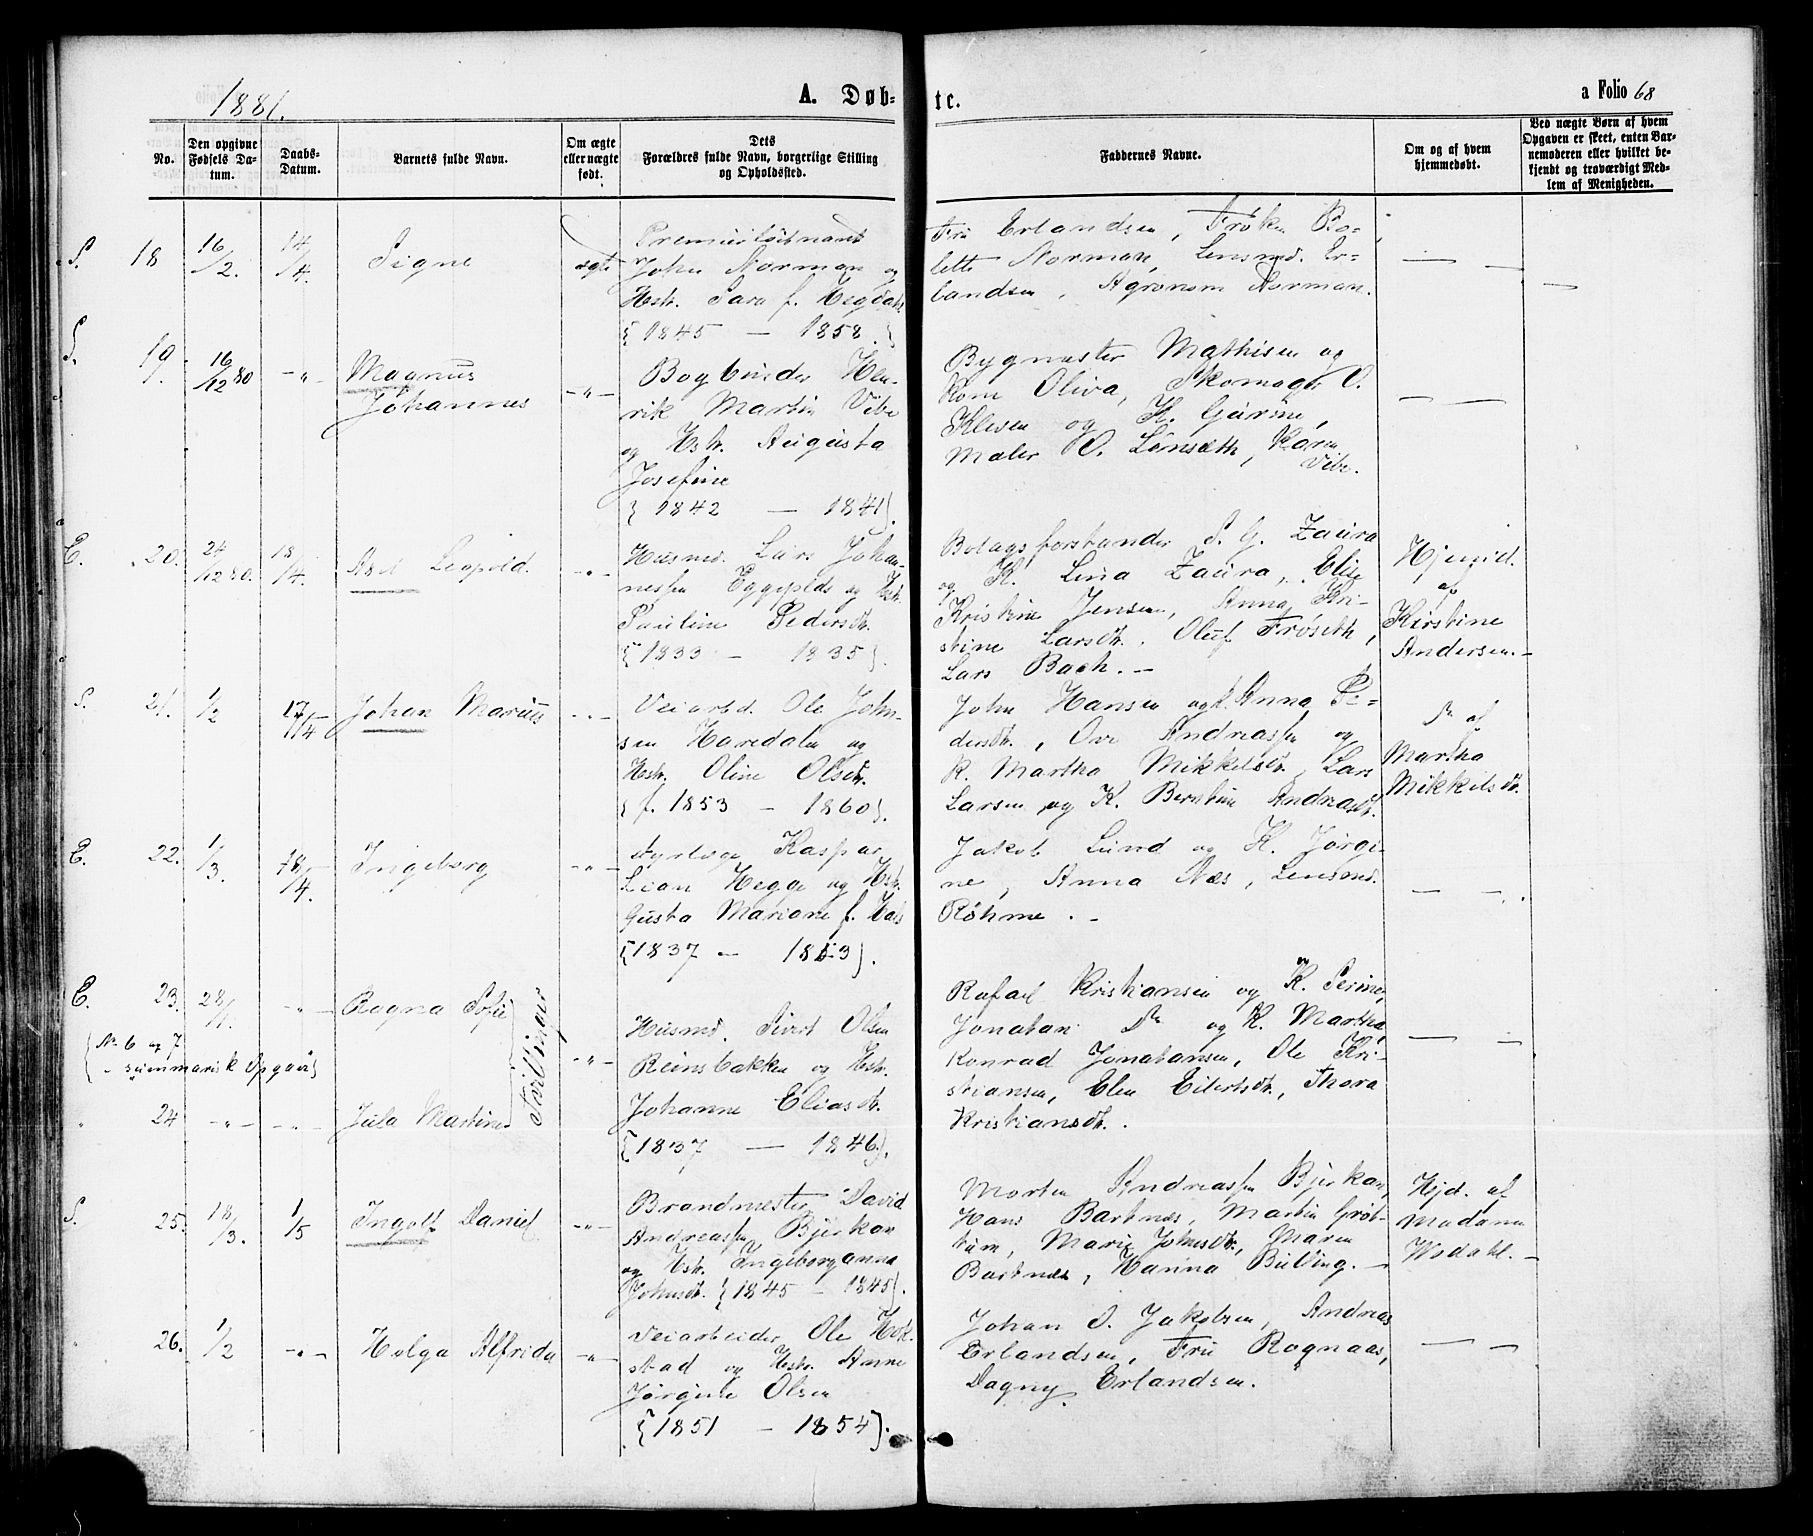 1881.
A. Døb-
te.
a Folio 68
No.
Den opgivne
Fødsels Da-
tum.
Daabs-
Datum.
Barnets fulde Navn.
Om ægte
eller uægte
født.
Dets
Forældres fulde Navn, borgerlige Stilling
og Opholdssted.
Faddernes Navne.
Om og af hvem
hjemmedøbt.
Ved uægte Børn af hvem
Opgaven er skeet, enten Bar-
nemoderen eller hvilket be-
kjendt og troværdigt Med-
lem af Menigheden.
S. 18 16/2. 14/4. Signe ægte
Premierløitnant
John Norman og
Hstr. Sara f. Hegdahl
{1845 — 1858.}
Fru Erlandsen, Frøken Bo-
lette Norman, Lensmd. Er-
landsen, Agronom Norman.
S. 19. 16/12 80 -"- Magnus
Johannes
-"-
Bogbinder Hen-
rik Martin Vibe
og Hstr. Augusta
Josefine
{1842 — 1841}.
Bygmester Mathisen og
Kone Oliva, Skomager O.
Klesen og K. Gurine,
Maler O. Lønsæth, Karen
Vibe.
E. 20. 24/12 80. 18/4. Axel Leopold. -"-
Husmd. Lars Johan-
nessen Eggeplds og Hstr.
Pauline Pedersdtr.
{1833 — 1835}.
Bolagsforstander S. G. Zaura
og K. Lina Zaura, Elise
Kristine Jensen, Anna Kri-
stine Larsdtr. Oluf Frøseth,
Lars Bach. —
Hjemd.
af
Kirstine
Andersen. —
S. 21. 1/2 17/4 Johan Marius -"-
Veiarbd. Ole John-
sen Haredalen og
Hstr. Oline Olsdtr.
{f. 1853 — 1860}.
John Hansen og K. Anna Pe-
dersdtr., Ove Andreassen og
K. Martha Mikkelsdtr. Lars
Larsen og K. Berntine Andreasdtr.
Do af
Martha
Mikkelsdtr.
E. 22. 1/3. 18/4. Ingeborg -"-
Kaspar
Lian Hegge og Hstr.
Gusta Mariane f. Hals
{1837 — 1853}.
Jakob Lund og K. Jørgi-
ne, Anna Næs, Lensmd.
Røhme. —
E. 23. 28/1. -"- Ragna Sofie
Tvillinger
{No 6 og 7
summarisk Opgave}
" 24 -"- -"- Jula Martine
-"-
Husmd. Sivert Olsen
Reinsbakken og Hstr.
Johanne Eliasdtr.
{1837 — 1846}.
Rafael Kristiansen og K. Serine,
Jonatan Do og K. Martha,
Konrad Jonatansen, Ole Kri-
stiansen, Elen Eilertsdtr., Thora
Kristiansdtr.
S. 25. 18/3. 1/5 Ingolf Daniel -"-
Brandmester David
Andreassen Bjerkan
og Hstr. Ingeborganna
Johnsdtr. {1845 — 1845}.
Morten Andreassen Bjerkan,
Hans Bartnæs, Martin Grøt-
tum, Marie Johnsdtr., Maren
Bartnæs, Hanna Billing. —
Hjd. af
Madame
Wodahl. —
" 26. 1/2 -"- Helga Alfrida -"-
Veiarbeider Ole Hok-
stad og Hstr. Anne
Jørgine Olsen
{1851 — 1854}.
Johan O. Jakobsen, Andreas
Erlandsen, Fru Rognaas,
Dagny Erlandsen.